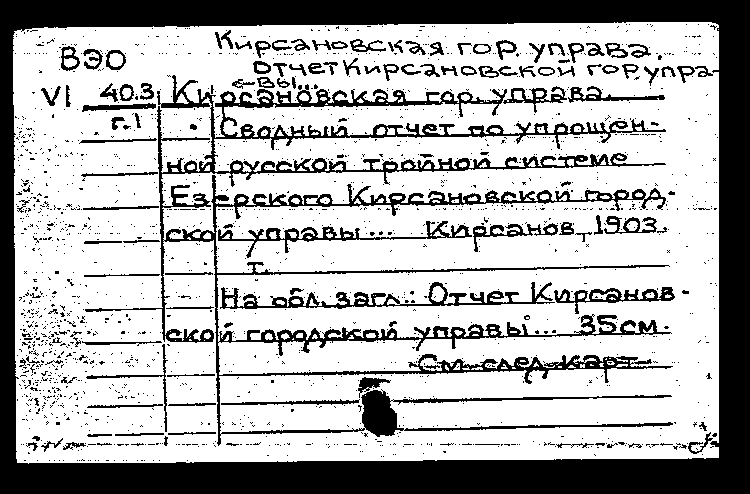 ВЭО
Кирсановская гор. управа.
Отчет Кирсановской гор. упра-
вы...
VI 40.3 Кирсановская гор. управа.
г.1 Сводный отчет по упрощен-
ной русской тройной системе
Езерского Кирсановской город-
ской управы... Кирсанов, 1903.
т.
На обл. загл.: Отчет Кирсанов-
ской городской управы... 35см.
См след. карт